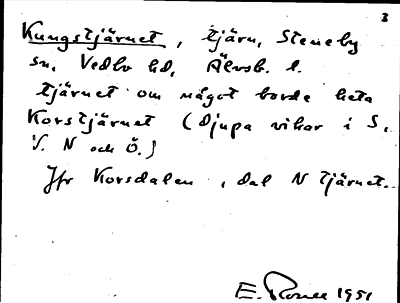 3
Kungstjärnet, tjärn, Steneby
sn, Vedbo hd, Älvsb. l.
tjärnet om något borde heta
Korstjärnet (djupa vikar i S,
V. N och Ö.)
Jfr Korsdalen, dal N tjärnet.
E. 1951